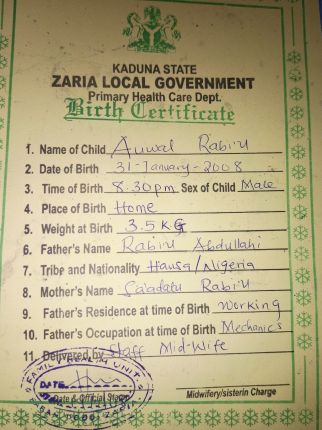 KADUNA STATE
ZARIA LOCAL GOVERNMENT
Primary Health Care Dept.
Birth Certificate
1. Name of Child Auwal Rabi'u
2. Date of Birth 31-January-2008
3. Time of Birth 8.30pm Sex of Child Male
4. Place of Birth Home
5. Weight at Birth 3.5KG
6. Father's Name Rabi'u Abdullahi
7. Tribe and Nationality Hausa/Nigeria
8. Mother's Name Sa'adatu Rabi'u
9. Father's Residence at time of Birth Working
10. Father's Occupation at time of Birth Mechanics
11. Delivered by Staff Mid-Wife
DATE
Date & Official Stamp
Midwifery/sisterin Charge